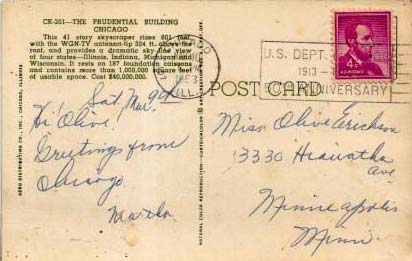 CK-201—THE PRUDENTIAL BUILDING
CHICAGO
This 41 story skyscraper rises 601 feet
with the WGN-TV antenna-tip 324 ft. above the
roof, and provides a dramatic sky-line view
of four states—Illinois, Indiana, Michigan and
Wisconsin. It rests on 187 foundation caissons
and contains more than 1,000,000 square feet
of usable space. Cost $40,000,000.
Sat. Mar. 9th
Hi Olive,
Greetings from
Chicago
Martha
AERO DISTRIBUTING CO., INC., CHICAGO, ILLINOIS
NATURAL COLOR REPRODUCTION
ILL.
1963
U.S. DEPT.
1913
ANNIVERSARY
4¢
POST CARD
Miss Olive Erickson
3330 Hiawatha
ave
Minneapolis
Minn.